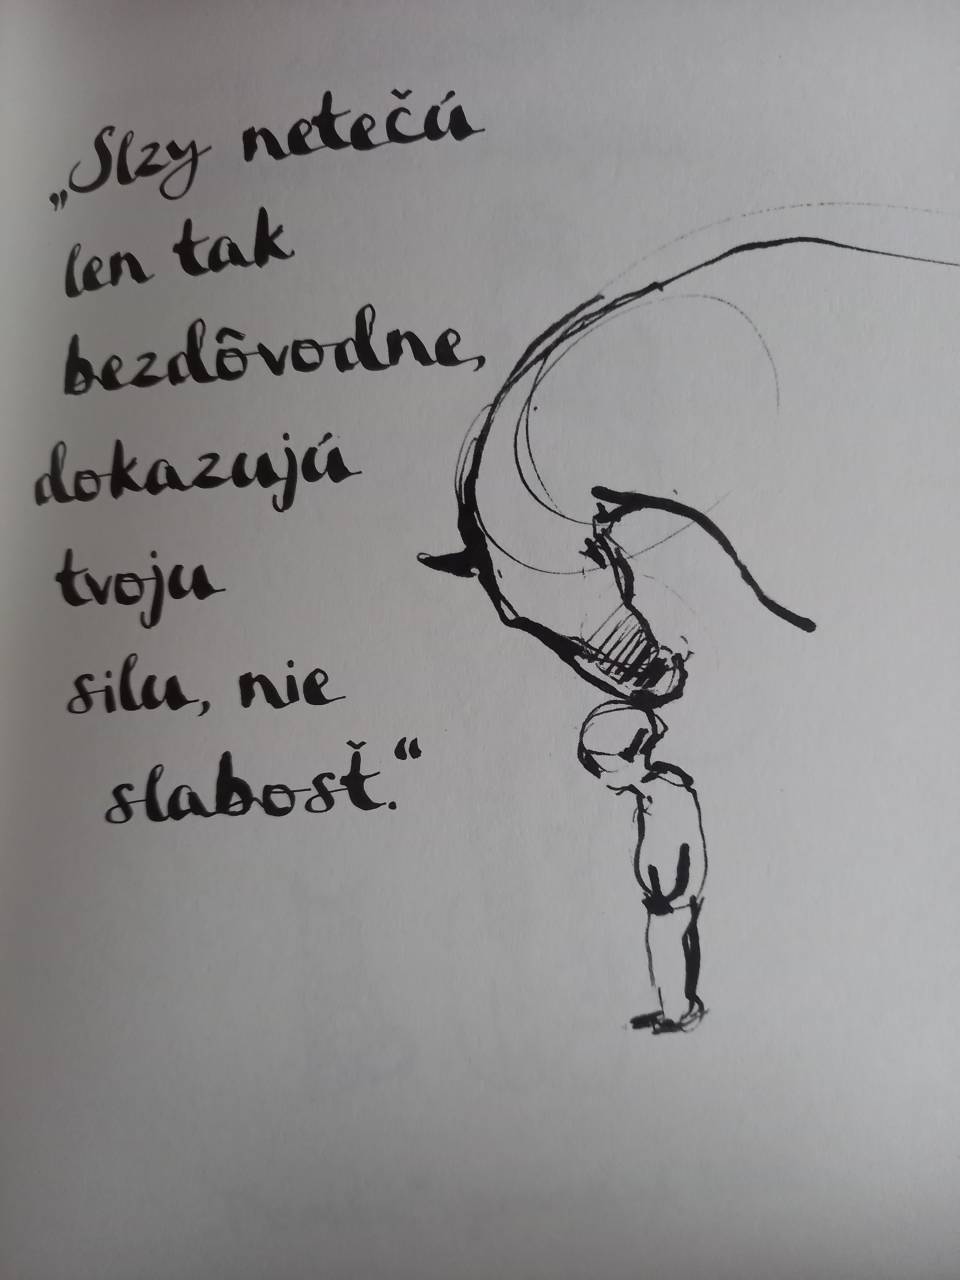 „Slzy netečú
len tak
bezdôvodne,
dokazujú
tvoju
silu, nie
slabosť.“